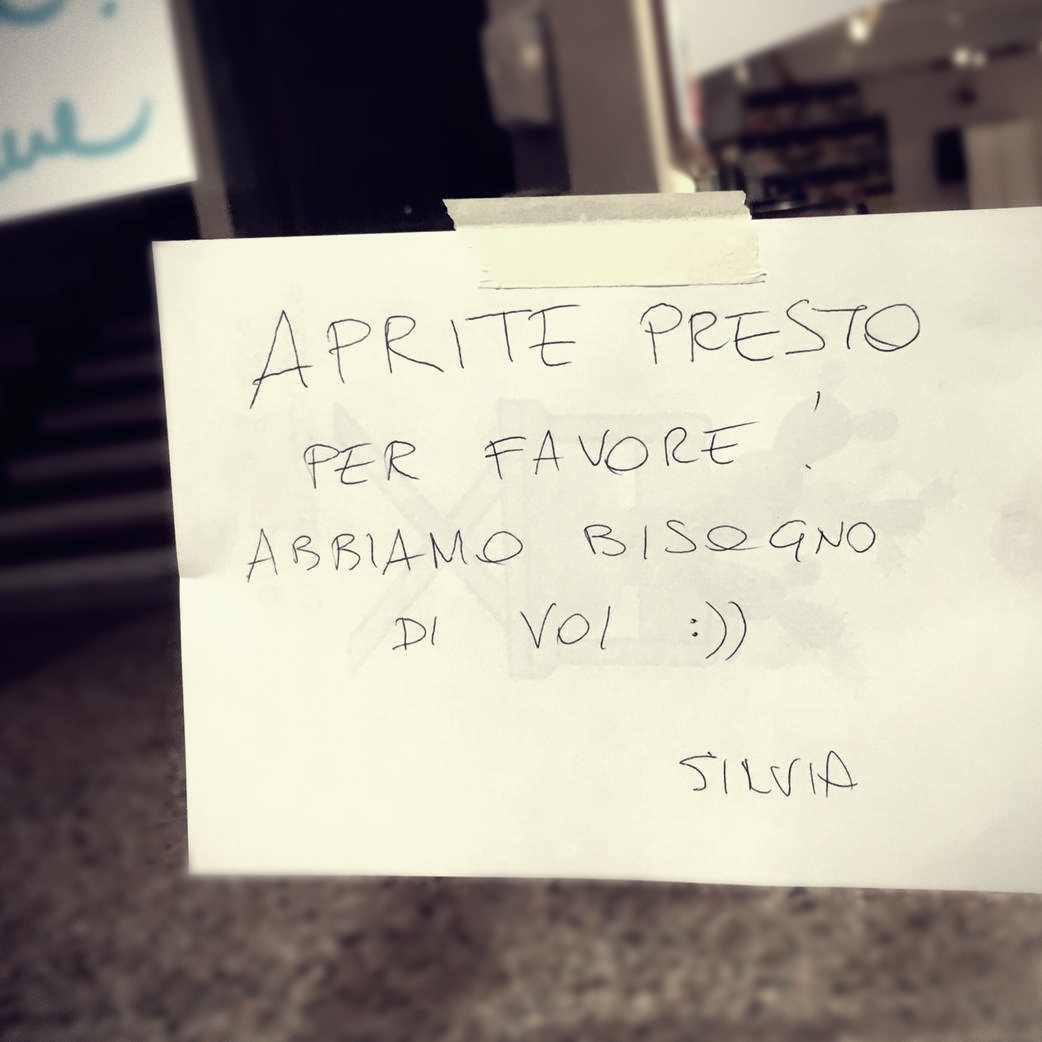 APRITE PRESTO
PER FAVORE!
ABBIAMO BISOGNO
DI VOI :))
SILVIA